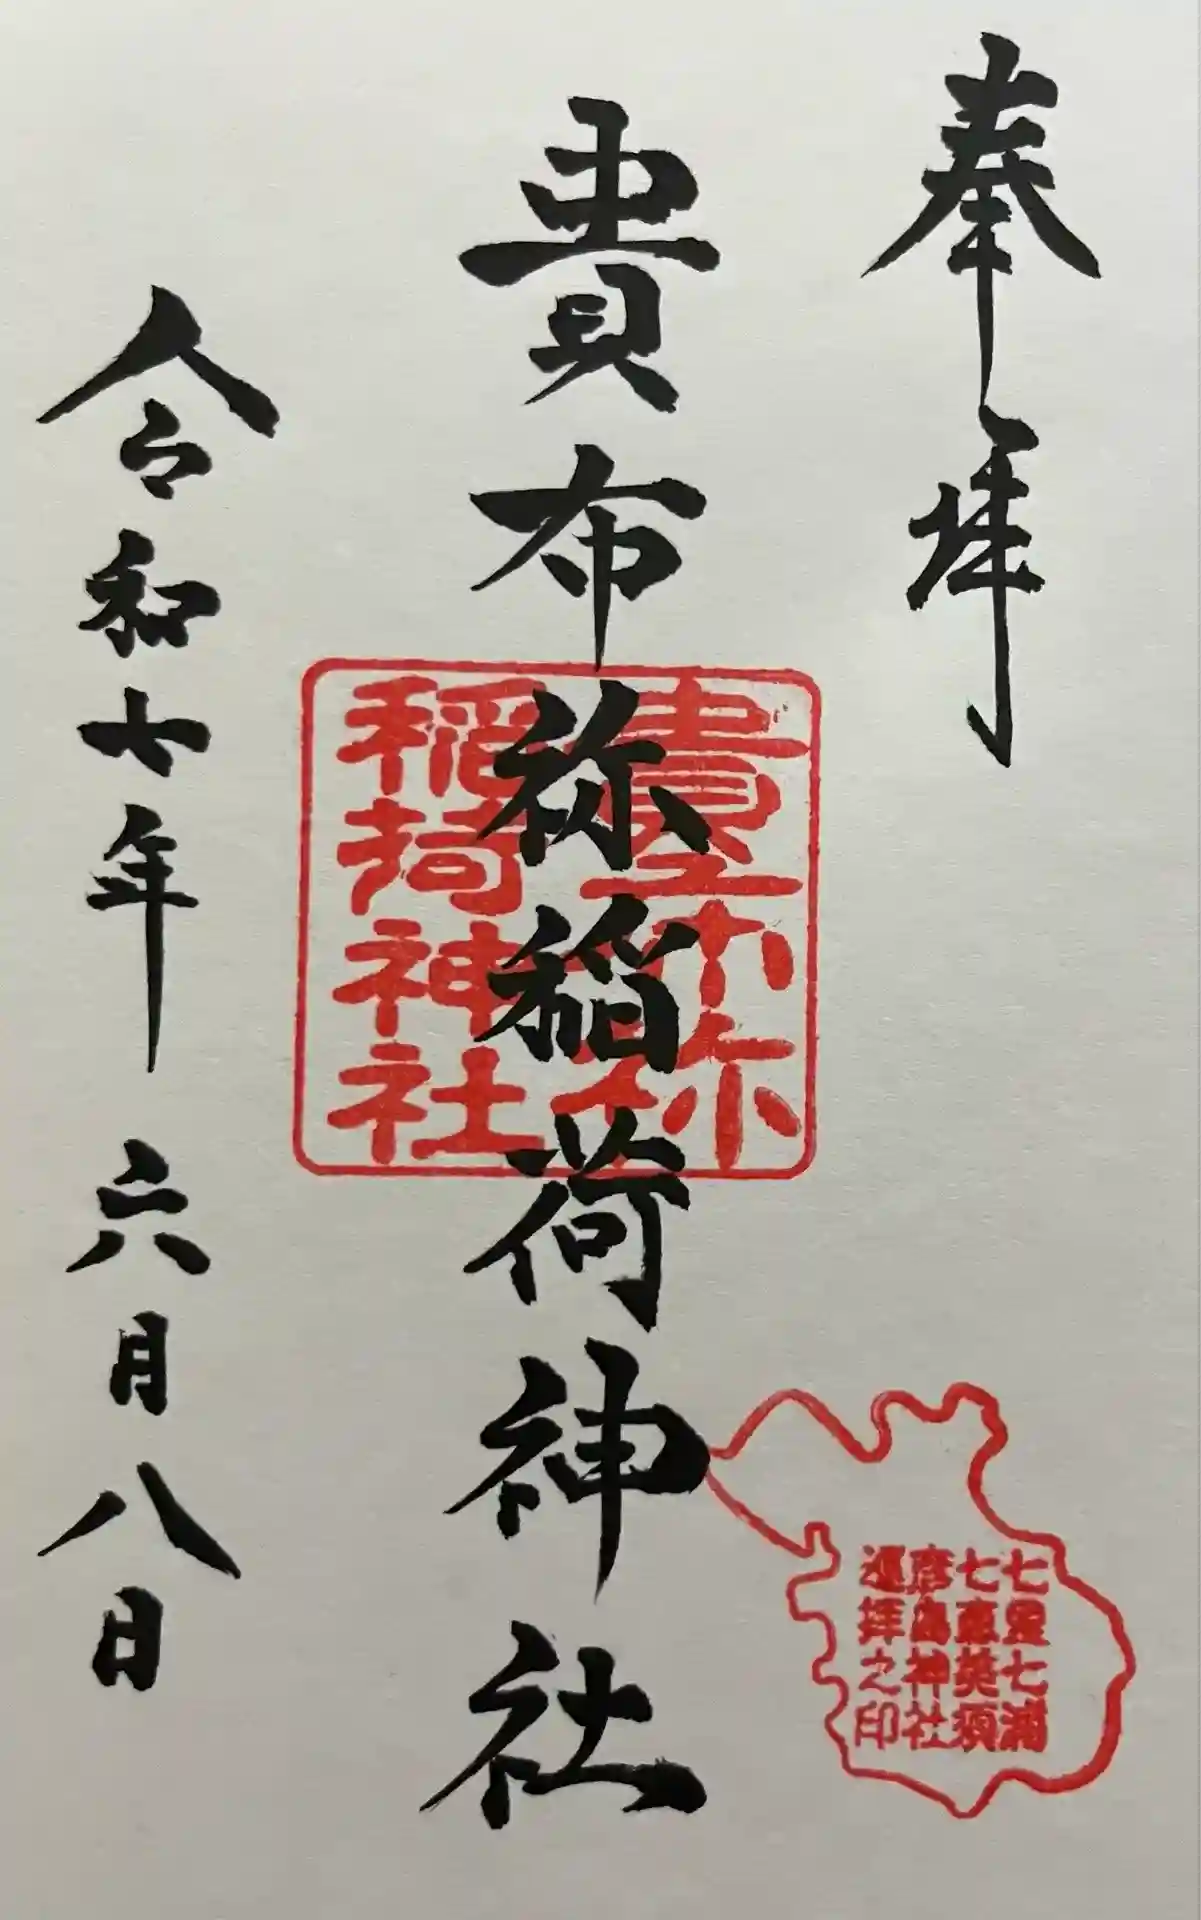 奉拝
貴布祢稲荷神社
稲荷神社
令和七年 六月八日
七里七浦
七恵美須
彦島神社
巡拝之印